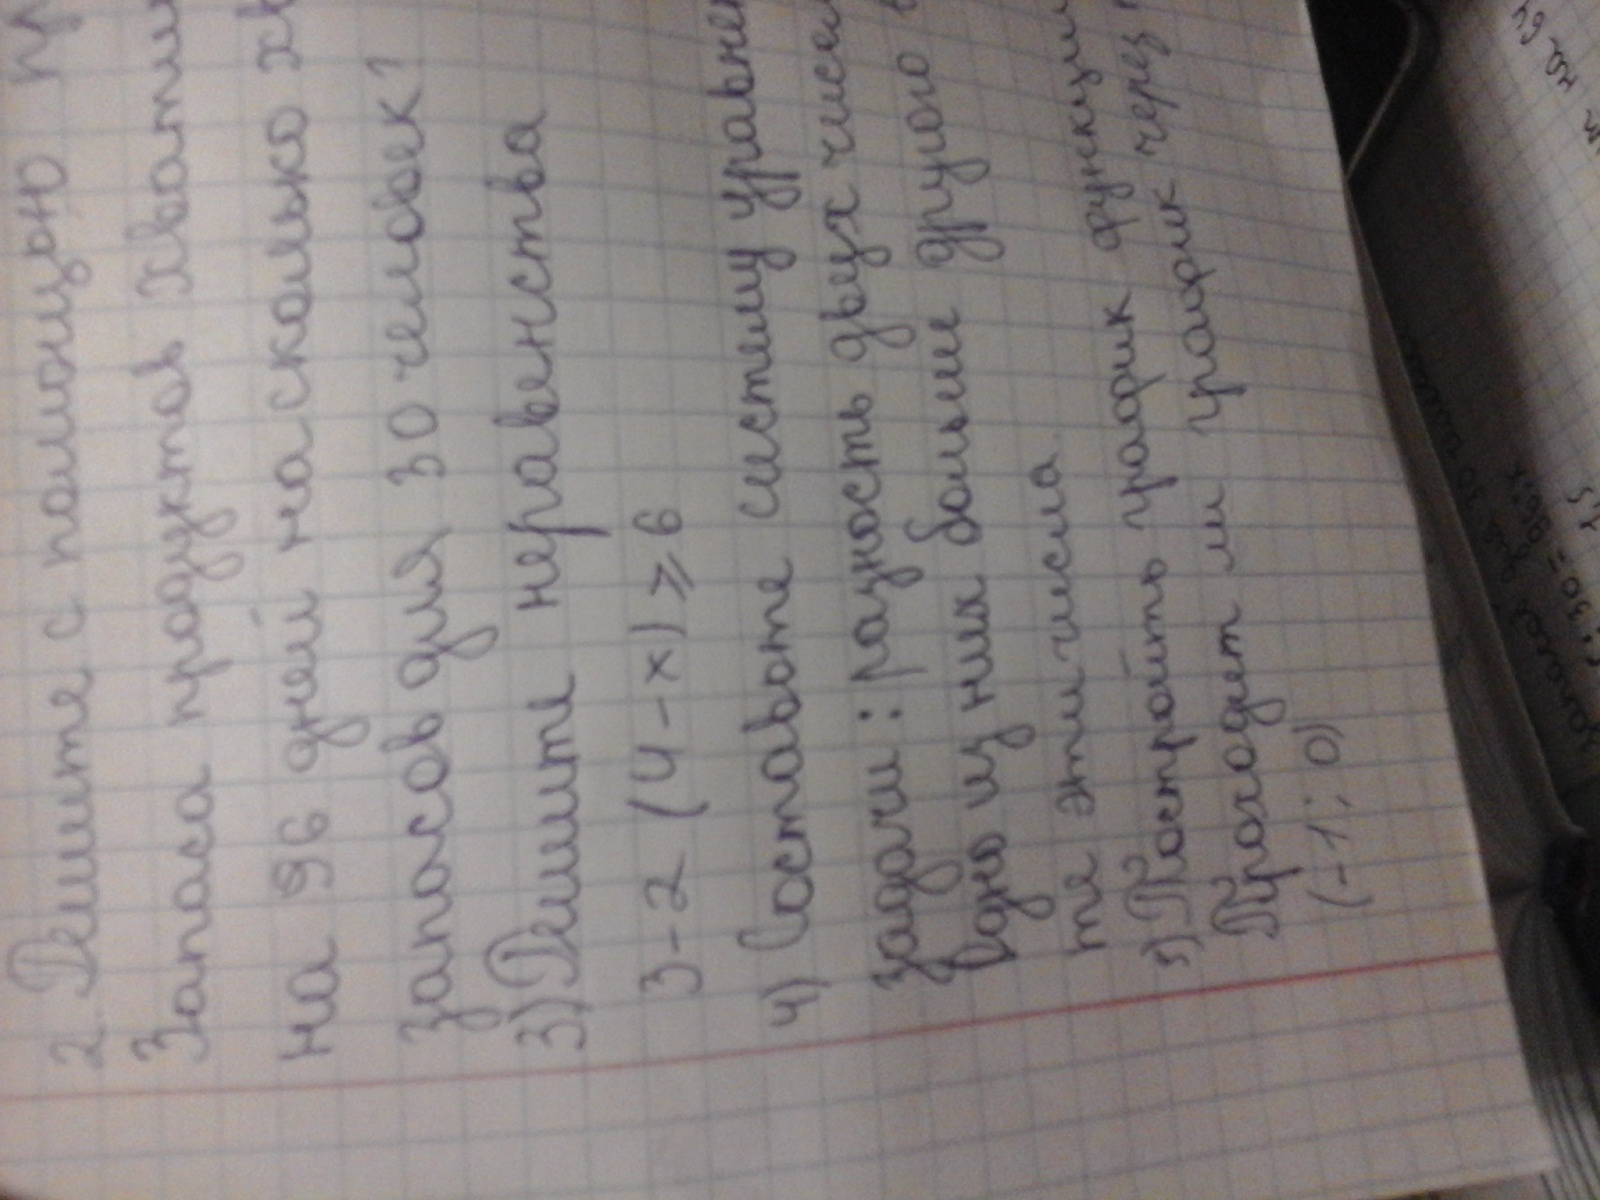 2. Решите с помощью
Запаса продуктов хватит
на 96 дней насколько
запасов для 30 человек?
3) Решите неравенства
3-2 (4-x) ⩾ 6
4) Составьте систему уравнен
задачи: разность двух чисел
Одно из них больше другого в
те эти числа.
5) Построить график функции
Проходит ли график через
(-1; 0)